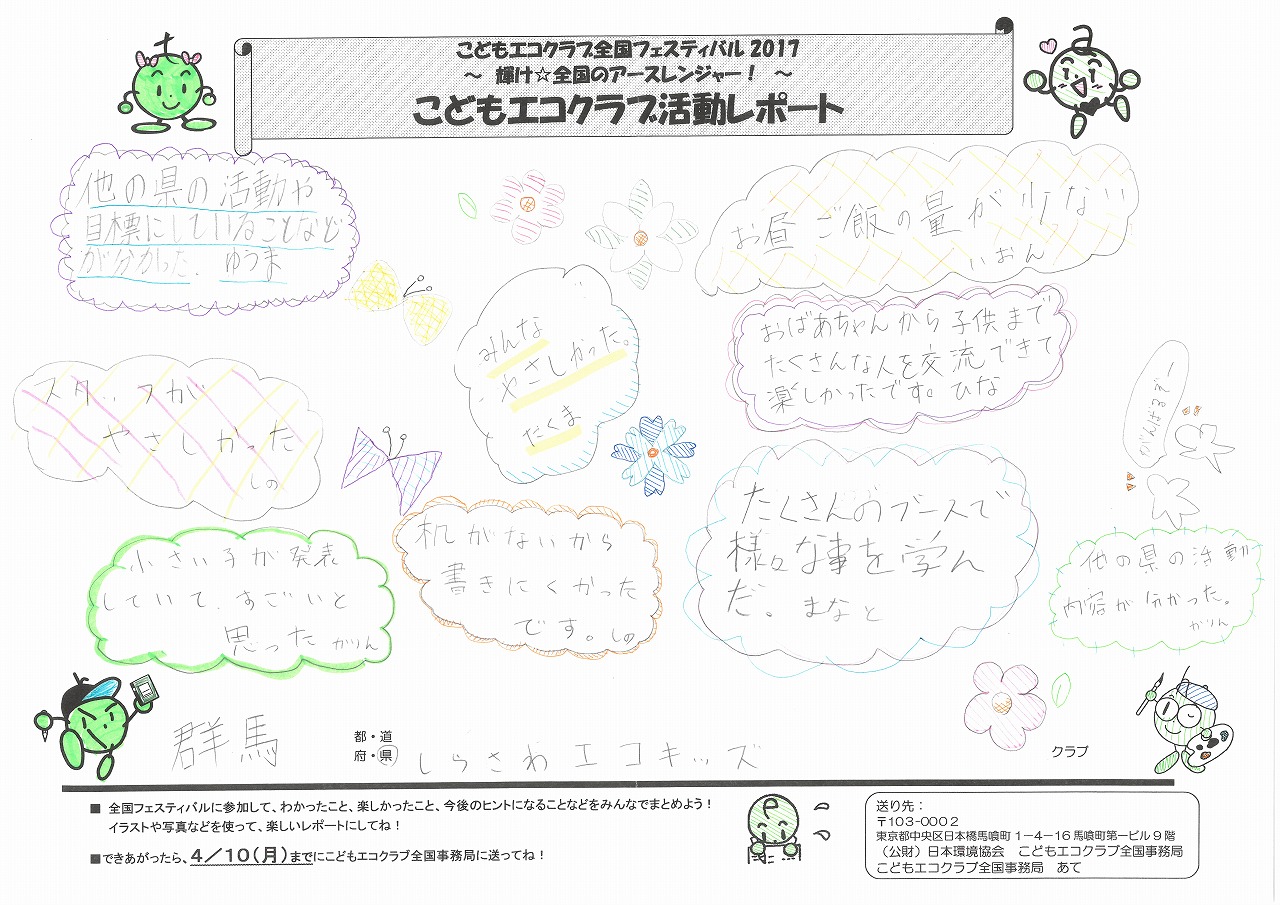 こどもエコクラブ全国フェスティバル 2017
～ 輝け☆全国のアースレンジャー！ ～
こどもエコクラブ活動レポート
他の県の活動や
目標にしていることなど
が分かった. ゆうま
お昼ご飯の量が少ない
いおん
みんな
やさしかった。
たくま
おばあちゃんから子供まで
たくさんな人を交流できて
楽しかったです。ひな
スタッフが
やさしかった
しの
がんばるぞー
小さい子が発表
していて、すごいと
思った かりん
机がないから
書きにくかった
です。しの
たくさんのブースで
様々な事を学ん
だ。まなと
他の県の活動
内容が分かった。
かりん
群馬 都・道
府・県 しらさわエコキッズ クラブ
■ 全国フェスティバルに参加して、わかったこと、楽しかったこと、今後のヒントになることなどをみんなでまとめよう！
イラストや写真などを使って、楽しいレポートにしてね！
■できあがったら、4／10（月）までにこどもエコクラブ全国事務局に送ってね！
送り先：
〒103-0002
東京都中央区日本橋馬喰町1－4－16馬喰町第一ビル9階
（公財）日本環境協会 こどもエコクラブ全国事務局
こどもエコクラブ全国事務局 あて